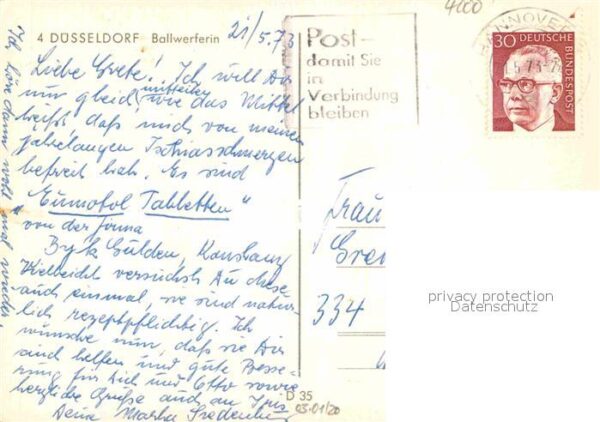 4000
21/5.73
4 DÜSSELDORF Ballwerferin
Liebe Grete! Ich will Dir
nur gleich mitteilen, wie das Mittel
heißt, daß mich von meinen
jahrelangen Ischiasschmerzen
befreit hat. Es sind
"Eumotol Tabletten"
von der Firma
Byk Gulden, Konstanz
Vielleicht versuchst Du diese
auch einmal, sie sind natür-
lich rezeptpflichtig. Ich
wünsche nur, daß sie Dir
auch helfen und gute Besse-
rung für Dich und Otto sowie
herzliche Grüße auch an
Deine Martha
Ich dann mal
Post-
damit Sie
in
Verbindung
bleiben
HANNOVER
5.73
30 DEUTSCHE
BUNDESPOST
Frau
Gre
334
privacy protection
Datenschutz
D 35
03-01/20